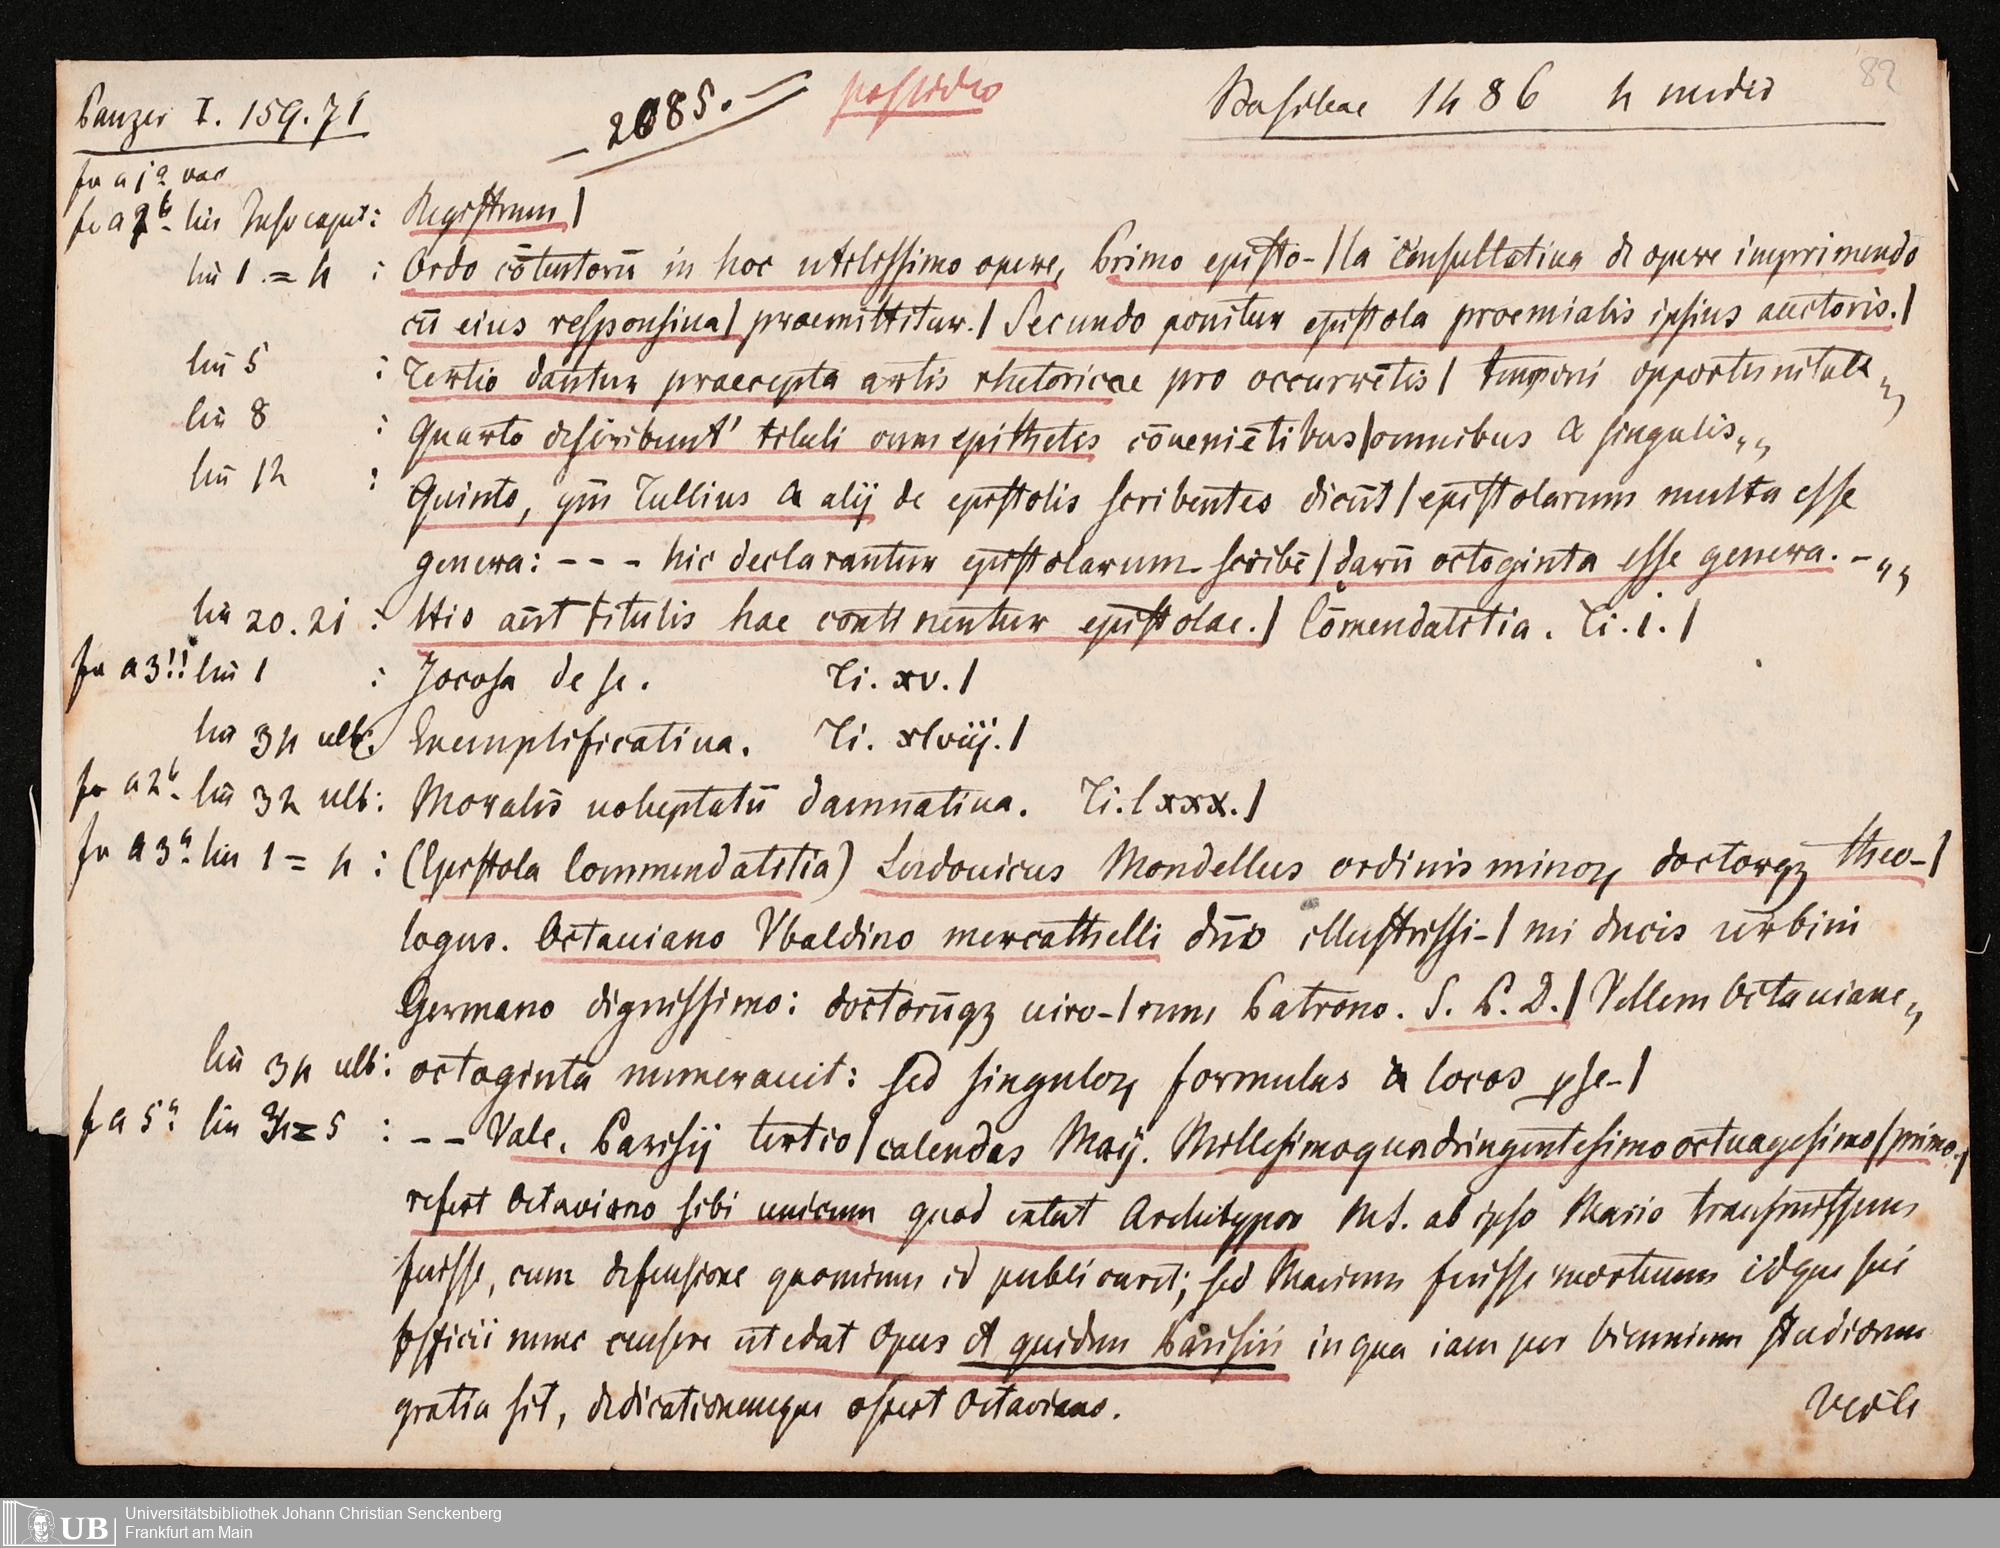 Panzer I. 159.71
2085.
possideo
Basileae 1486 4 nudis
82
fo a 1a vac
fo a 2b lin Insp caput : Registrum |
lin 1 = 4 : Ordo cōtentorū in hoc utilissimo opere, Primo episto- | la Consultatiua de opere imprimendo
cū eius responsiua | praemittitur. | Secundo ponitur epistola proemialis ipsius auctoris. |
lin 5 : Tertio dantur praecepta artis rhetoricae pro occurrētis | temporis opportunitate „
lin 8 : Quarto describunt' tituli cum epithetis cōueniētibus | omnibus & singulis „
lin 12 : Quinto, qm̄ Tullius & alij de epistolis scribentes dicūt | epistolarum multa esse
genera: - - - hic declarantur epistolarum scribē | darū octoginta esse genera. - „
lin 20. 21 : His aūt titulis hae continentur epistolae. | Cōmendatitia. Ti. i. |
fo a3!! lin 1 : Jocosa de se. Ti. xv. |
lin 34 ult: Exemplificatiua. Ti. xlviij. |
fo a2b lin 32 ult: Moralis uoluptatū damnatiua. Ti. lxxx. |
fo a3a lin 1 = 4 : (Epistola Commendatitia) Ludouicus Mondellus ordinis minoꝝ doctorqꝫ theo- |
logus. Octauiano Vbaldino mercathelli dn̄o illustrissi- | mi ducis urbini
Germano dignissimo: doctorūqꝫ uiro- | rum Patrono. S. P. D. | Vellem Octauiane „
lin 34 ult: octoginta numerauit: sed singuloꝝ formulas & locos pse- |
f a 5a lin 4 = 5 : - - Vale. Parisij tertio | calendas Maij. Millesimoquadringentesimooctuagesimo | primo. |
refert Octaviano sibi unicum quod extat Archetypon MS. ab ipso Mario transmissum
fuisse, cum defensione quominus id publicaret; sed Marium fuisse mortuum idque sui
officii nunc censere ut edat Opus et quidem Parisiis in qua iam per biennium studiorum
gratia sit, dedicationemque offert Octaviano.